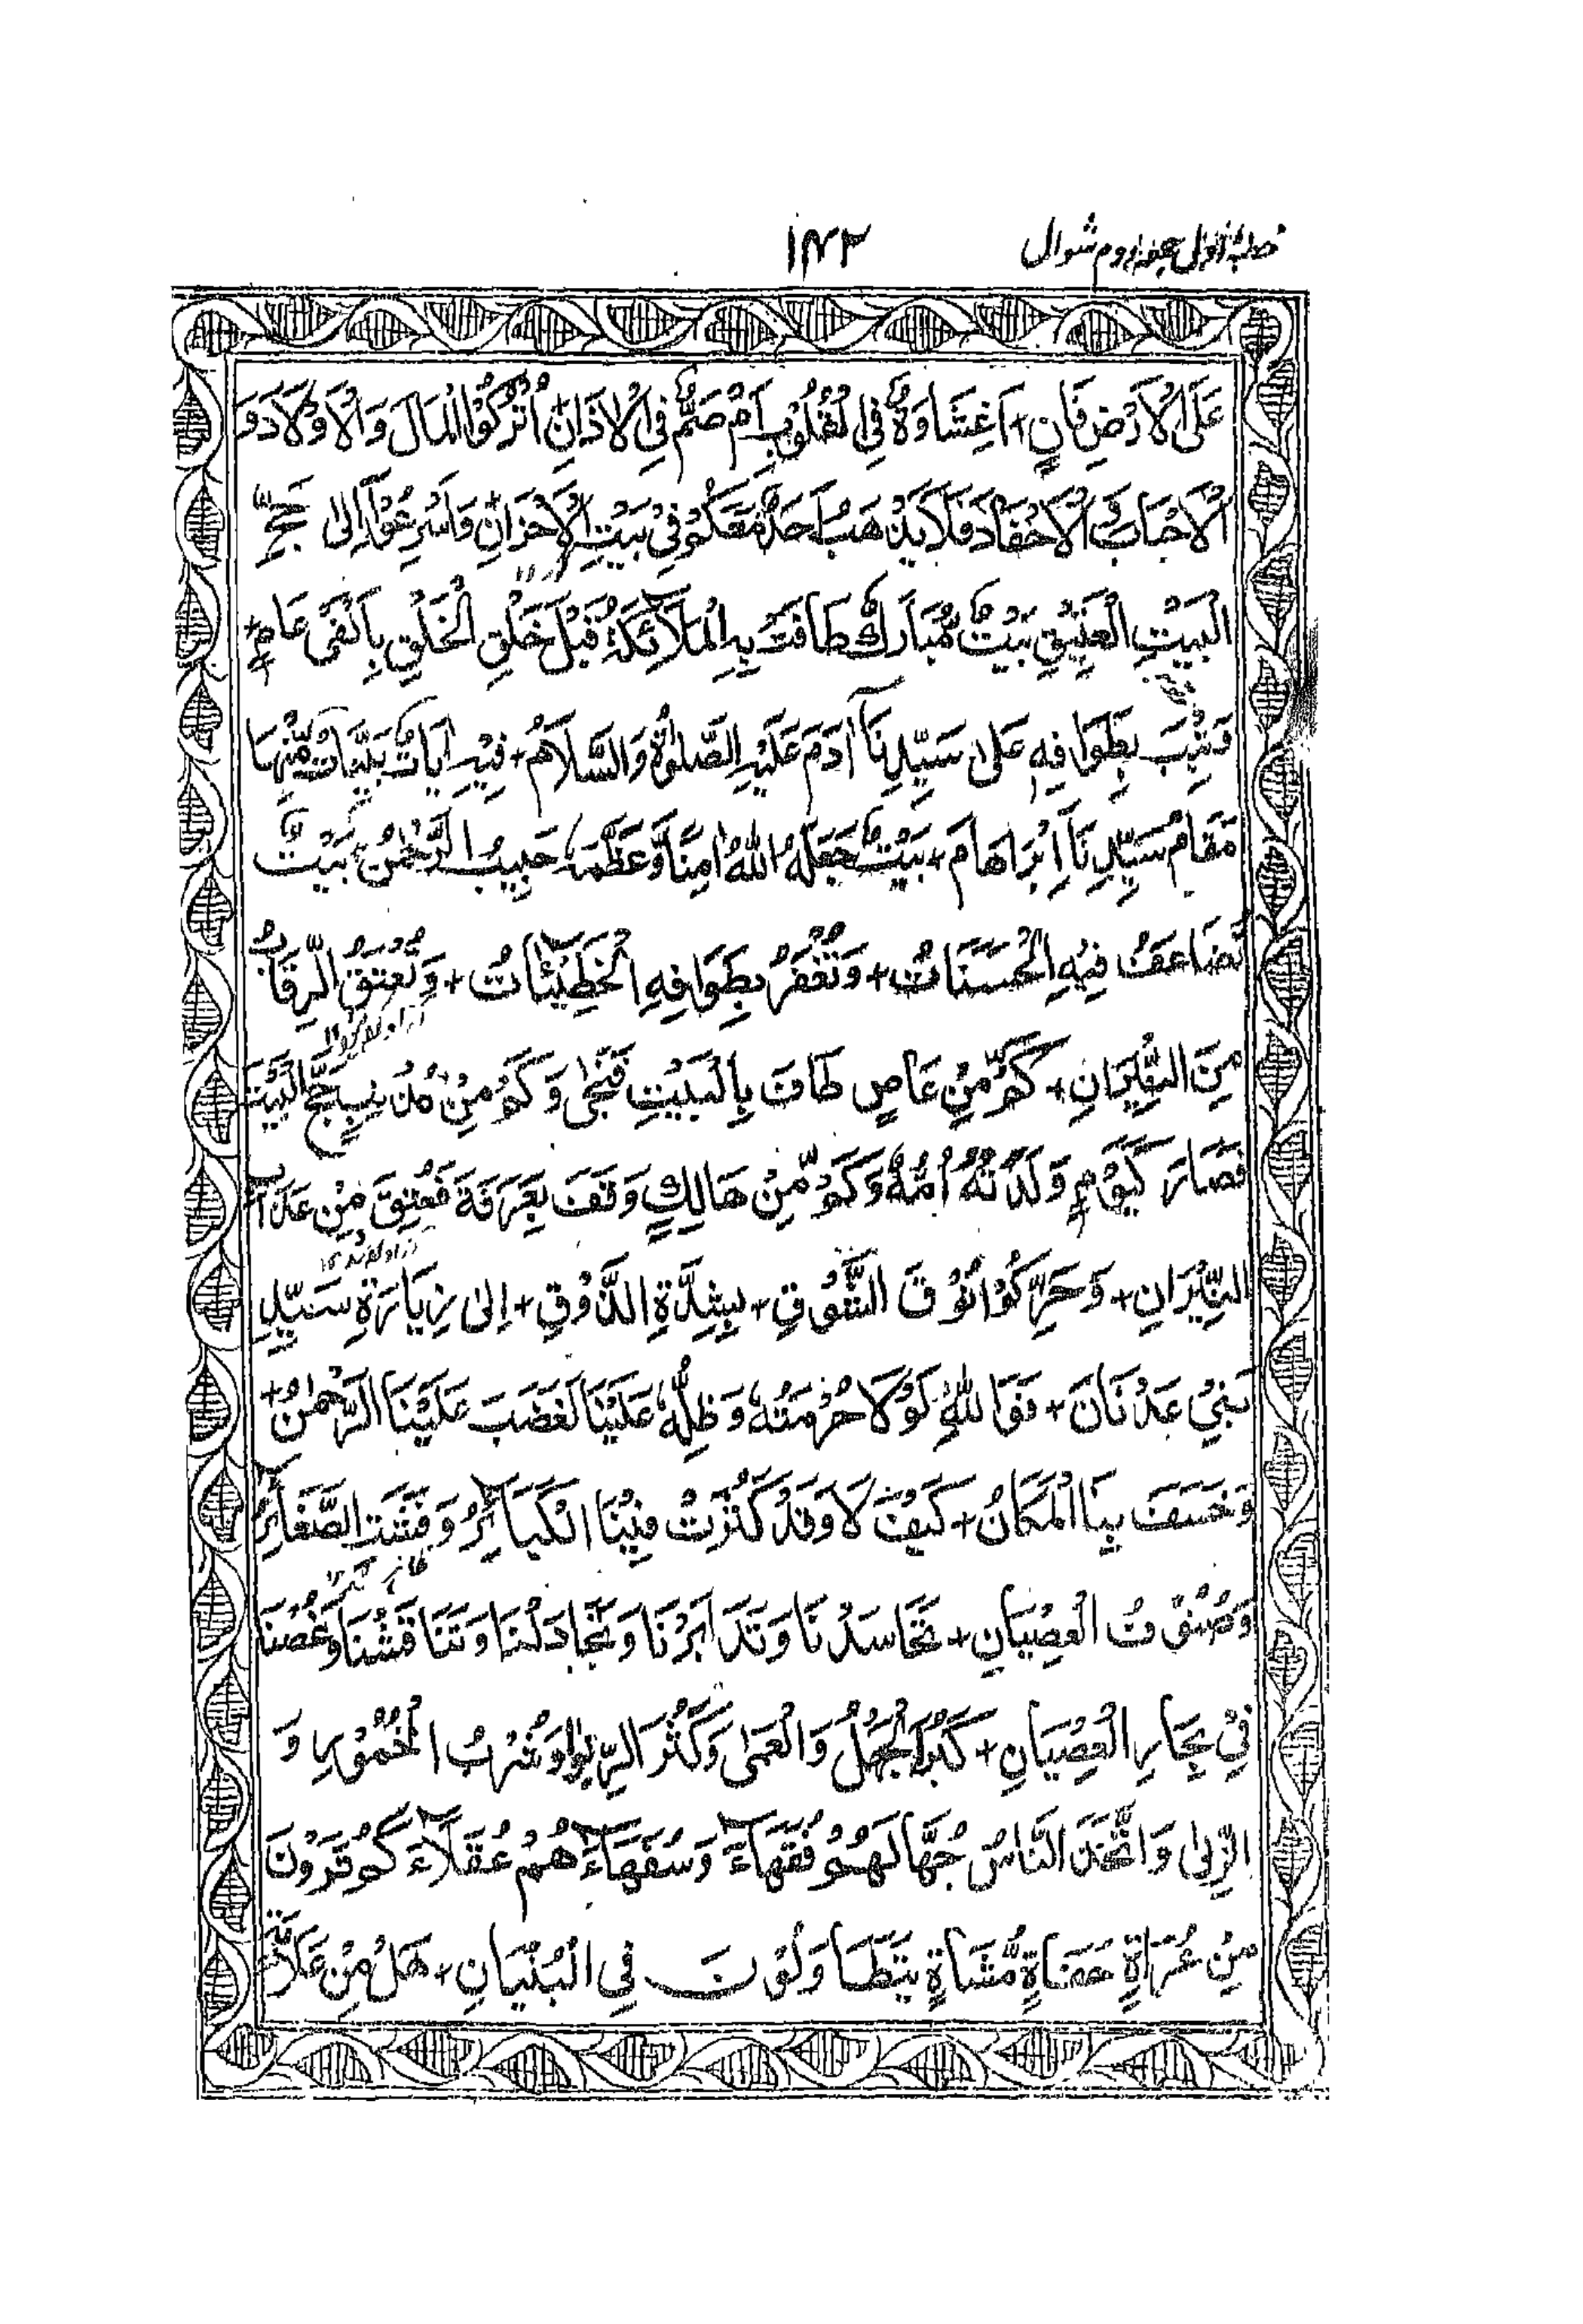 خطبۂ اولی جمعہ دوم شوال ١٤٣
عَلَى الْاَرْضِ فَانٍ + اَغِشَاوَةٌ فِى الْقُلُوْبِ اَمْ صَمَمٌ فِى الْاٰذَانِ + اُتْرُكُوْا الْمَالَ وَالْاَوْلَادَ وَ
الْاَحْبَابَ وَالْاَحْفَادَ فَلَا يَذْهَبُ اَحَدٌ مَّعَكُمْ فِىْ بَيْتِ الْاَحْزَانِ + وَاَسْرِعُوْا اِلٰى حَجِّ
الْبَيْتِ الْعَتِيْقِ بَيْتٌ مُّبَارَكٌ طَافَتْ بِهِ الْمَلَآئِكَةُ قَبْلَ خَلْقِ الْخَلْقِ بِاَلْفَىْ عَامٍ +
وَتِيْبَ بِطَوَافِهِ عَلٰى سَيِّدِنَآ اٰدَمَ عَلَيْهِ الصَّلٰوةُ وَالسَّلَامُ + فِيْهِ اٰيَاتٌ بَيِّنَاتٌ مِّنْهَا
مَقَامُ سَيِّدِنَآ اِبْرَاهَامَ + بَيْتٌ جَعَلَهُ اللّٰهُ اٰمِنًا وَّعَظَّمَهٗ حَبِيْبُ الرَّحْمٰنِ + بَيْتٌ
تُضَاعَفُ فِيْهِ الْحَسَنَاتُ + وَتُغْفَرُ بِطَوَافِهِ الْخَطِيْئَاتُ + وَتُعْتَقُ الرِّقَابُ
آزاد
مِنَ النِّيْرَانِ + كَمْ مِّنْ عَاصٍ طَافَ بِالْبَيْتِ فَنَجٰى وَكَمْ مِّنْ مُّذْنِبٍ حَجَّ الْبَيْتَ
فَصَارَ كَيَوْمٍ وَلَدَتْهُ اُمُّهٗ وَكَمْ مِّنْ هَالِكٍ وَقَفَ بِعَرَفَةَ فَعُتِقَ مِنْ عَذَابِ
النِّيْرَانِ + وَحَرِّكُوْا نُوْقَ الشَّوْقِ + بِشِدَّةِ الذَّوْقِ + اِلٰى زِيَارَةِ سَيِّدِ
بَنِىْ عَدْنَانَ + فَوَاللّٰهِ لَوْلَا حُرْمَتُهٗ وَظِلُّهٗ عَلَيْنَا لَغَضَبَ عَلَيْنَا الرَّحْمٰنُ +
وَخَسَفَ بِنَا الْمَكَانُ + كَيْفَ لَا وَقَدْ كَثُرَتْ فِيْنَا الْكَبَآئِرُ وَفَشَتِ الصَّغَآئِرُ
وَصُنُوْفُ الْعِصْيَانِ + تَحَاسَدْنَا وَتَدَابَرْنَا وَتَجَادَلْنَا وَتَنَاقَشْنَا وَغُصْنَا
فِىْ بِحَارِ الْعِصْيَانِ + كَبُرَ الْجَهْلُ وَالْعَمٰى وَكَثُرَ الرِّبٰوا وَشُرْبُ الْخُمُوْرِ وَ
الزِّنٰى وَاتَّخَذَ النَّاسُ جُهَّالَهُمْ فُقَهَآءَ وَسُفَهَآءَ هُمْ عُقَلَآءَ كَمْ تَرَوْنَ
مِنْ عُرَاةٍ حُفَاةٍ مُّشَاةٍ يَتَطَاوَلُوْنَ فِى الْبُنْيَانِ + هَلْ مِنْ عَلَامَةٍ